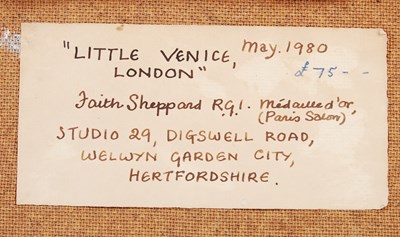 "LITTLE VENICE, May. 1980
LONDON" £75--
Faith Sheppard R.G.I. Médaille d'or,
(Paris Salon)
STUDIO 29, DIGSWELL ROAD,
WELWYN GARDEN CITY,
HERTFORDSHIRE.